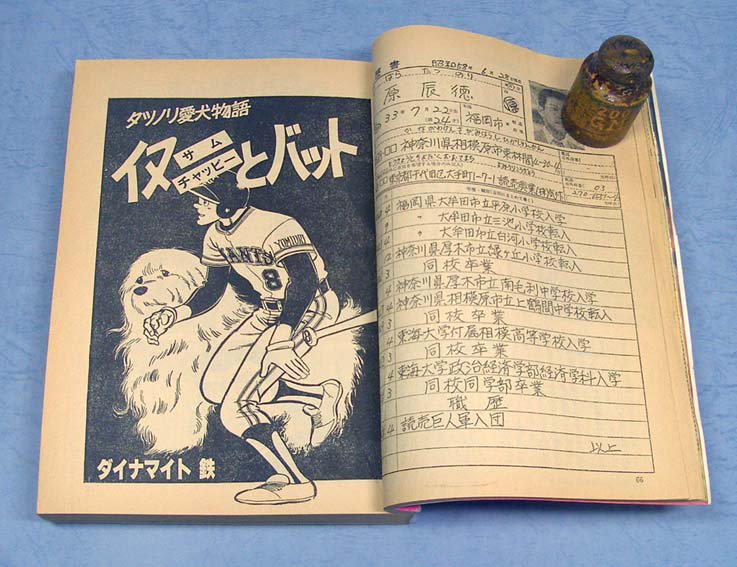 タツノリ愛犬物語
イヌとバット
サム
チャッピー
YOMIURI
IANTS
8
ダイナマイト 鉄
昭和58年 6月28日
はら たつ のり
原 辰徳
33年 7月22日
満24才
福岡市
神奈川県相模原市東林間4-20-
東京都千代田区大手町1-7-1 読売興業
03
福岡県 大牟田市立平原小学校入学
〃 大牟田市立三池小学校転入
〃 大牟田市立白河小学校転入
神奈川県厚木市立緑ヶ丘小学校転入
同校卒業
神奈川県厚木市立南毛利中学校入学
神奈川県相模原市立上鶴間中学校転入
同校卒業
東海大学付属相模高等学校入学
同校卒業
東海大学政治経済学部経済学科入学
同校同学部卒業
職歴
読売巨人軍入団
以上
66